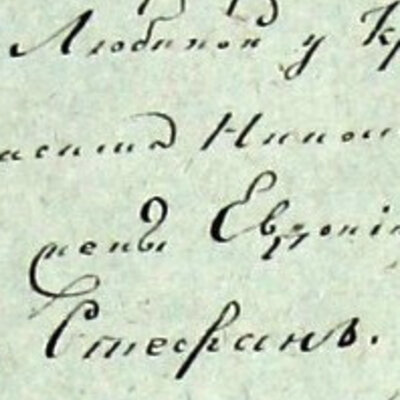 Любиной у Кр
асилія Никол
жены Евдокі
Стефанъ.